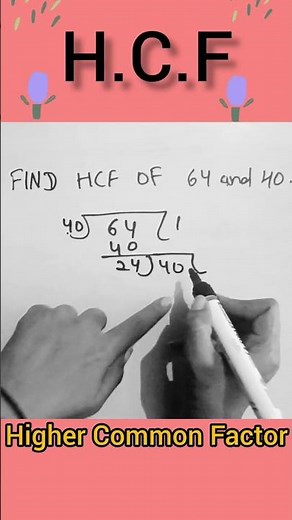 H.C.F
FIND HCF OF 64 and 40.
40) 64 ( 1
40
24) 40 (
Higher Common Factor